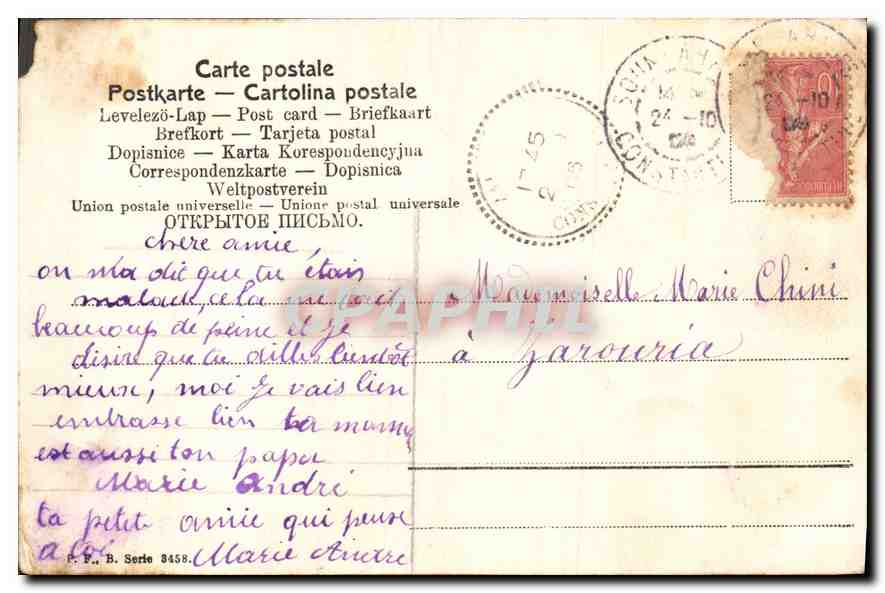 Carte postale
Postkarte — Cartolina postale
Levelezö-Lap — Post card — Briefkaart
Brefkort — Tarjeta postal
Dopisnice — Karta Korespondencyjna
Correspondenzkarte — Dopisnica
Weltpostverein
Union postale universelle — Unione postal universale
ОТКРЫТОЕ ПИСЬМО.
chere amie,
on m'a dit que tu étais
malade, cela me fait
beaucoup de peine et je
désire que tu ailles bientôt
mieux, moi je vais bien
embrasse bien ta maman
est aussi ton papa
Marie André
ta petite amie qui pense
a toi Marie Andre
P. F., B. Serie 3458.
Mademoiselle Marie Chini
à Zarouria
SOUK AHRAS
24 -10
CONSTANTINE
15 45
CONS
CPAPHIL